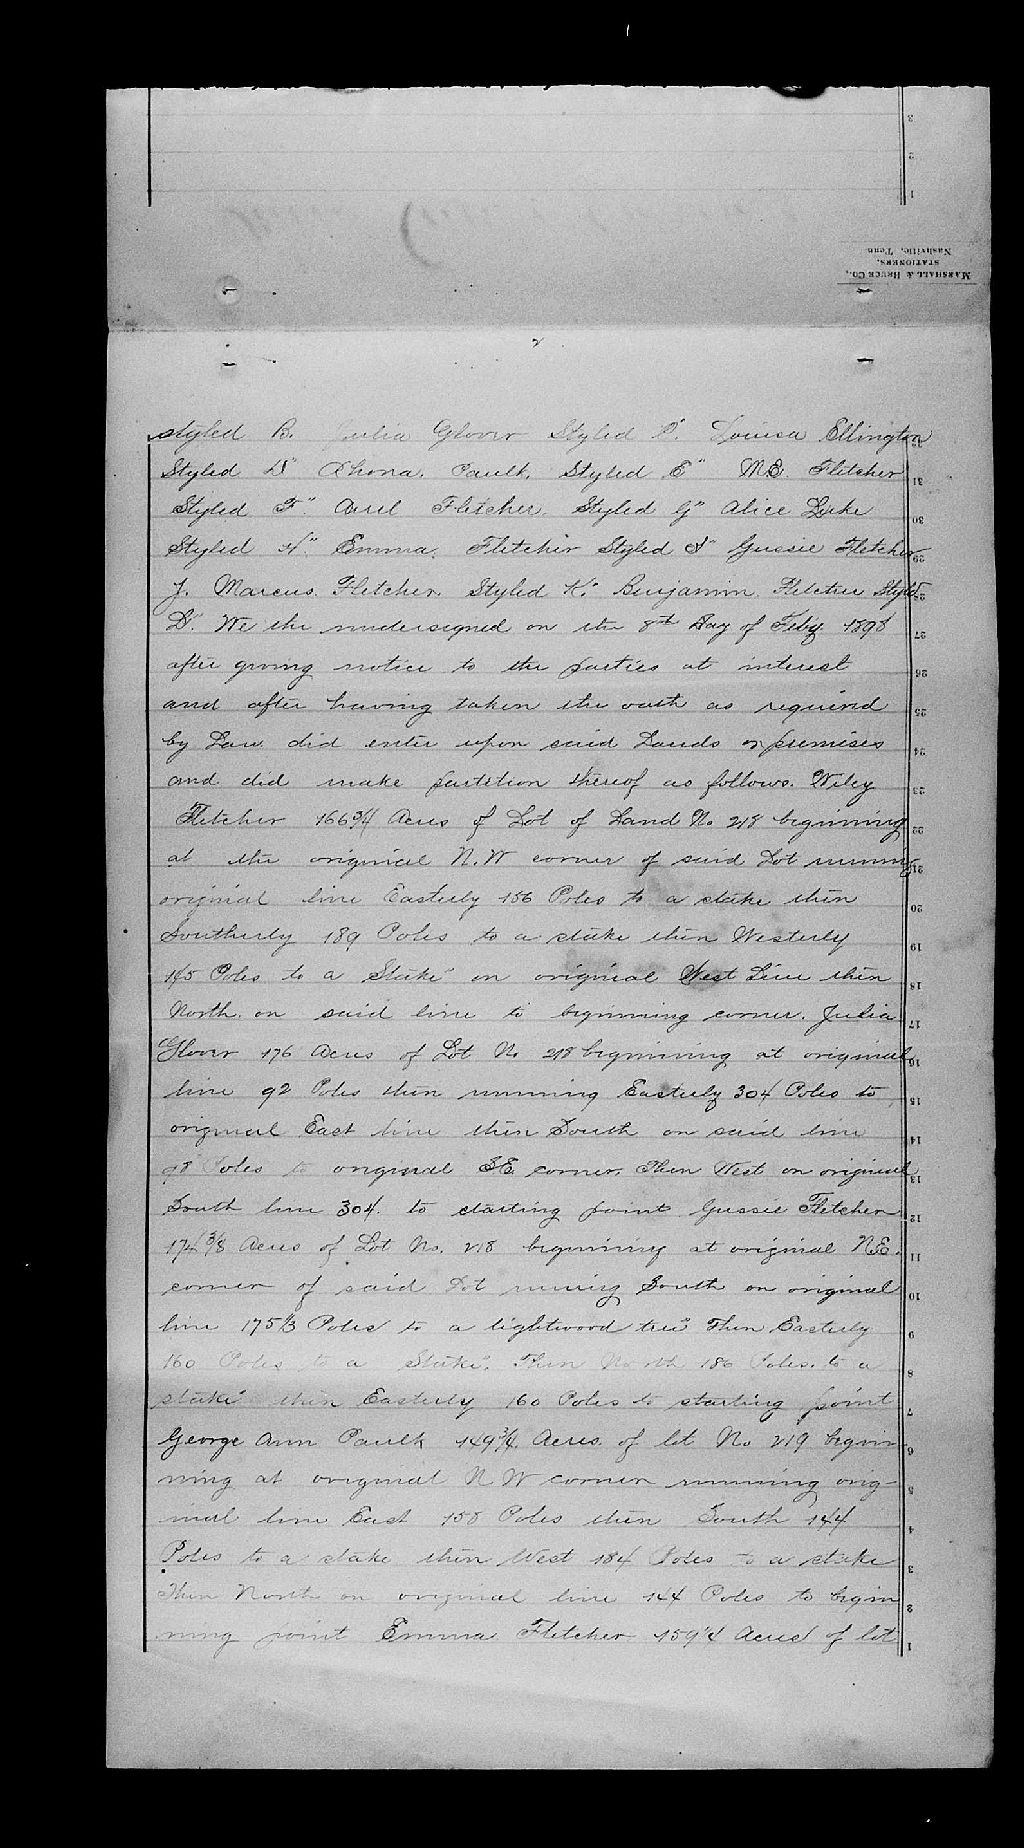 3
2
1
MARSHALL & BRUCE CO.,
STATIONERS,
Nashville, Tenn
2
Styled B. Julia Glover Styled C. Louisa Ellington
Styled D" Rhona Paulk, Styled E" M.E. Fletcher
Styled F" Auril Fletcher. Styled G" Alice Luke
Styled H" Emma Fletcher Styled I" Gussie Fletcher
J. Marcus Fletcher Styled K" Benjamin Fletcher Styled
L". We the undersigned on the 8th Day of Feby 1898
after giving notice to the parties at interest
and after having taken the oath as required
by Law did enter upon said Lands or premises
and did make partition thereof as follows. Wiley
Fletcher 166 3/4 Acres of Lot of Land No 218 beginning
at the original N.W corner of said Lot runing
original line Easterly 156 Poles to a stake then
Southerly 189 Poles to a stake then Westerly
145 Poles to a Stake" on original West Line then
North on said line to biginning corner. Julia
Glover 176 Acres of Lot No 218 beginining at original
line 92 Poles then running Easterly 304 Poles to
original East line then South on said line
98 Poles to original S.E. corner. Then West on original
South line 304. to starting point Gussie Fletcher
174 3/8 Acres of Lot No. 218 beginning at original N.E.
corner of said Lot runing South on original
line 175 1/3 Poles to a lightwood tree" Then Easterly
160 Poles to a Stake". Then North 186 Poles. to a
stake" then Easterly 160 Poles to starting point
George Ann Paulk 149 3/4 Acres. of lot No 219 begin
ning at original N W corner running orig-
inal line East 158 Poles then South 144
Poles to a stake then West 184 Poles to a stake
Then North on original line 144 Poles to begin
ning point Emma Fletcher 159 1/4 Acres of lot